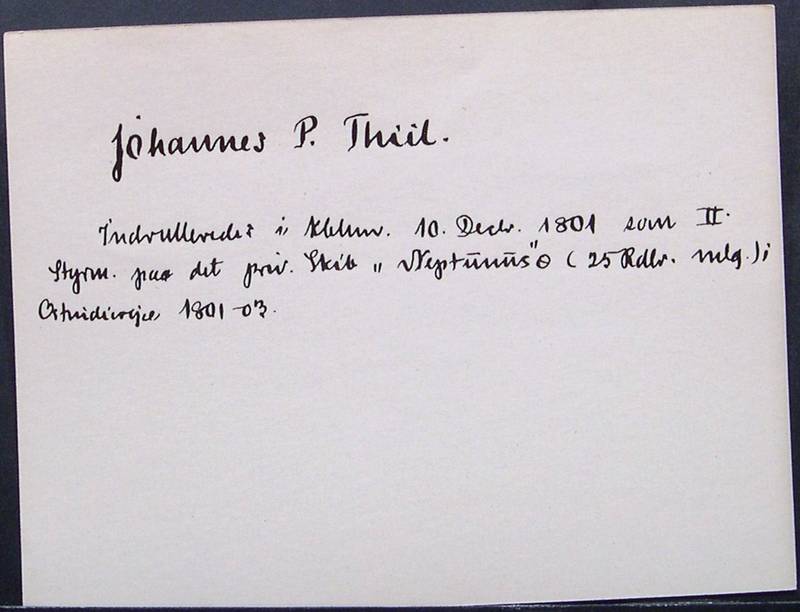 Johannes P. Thiil.
Indrulleredes i Kbhvn. 10. Decbr. 1801 som II.
Styrm. paa det priv. Skib „Neptunus" (25 Rdlr. mlg.) i
Ostindierejse 1801-03.